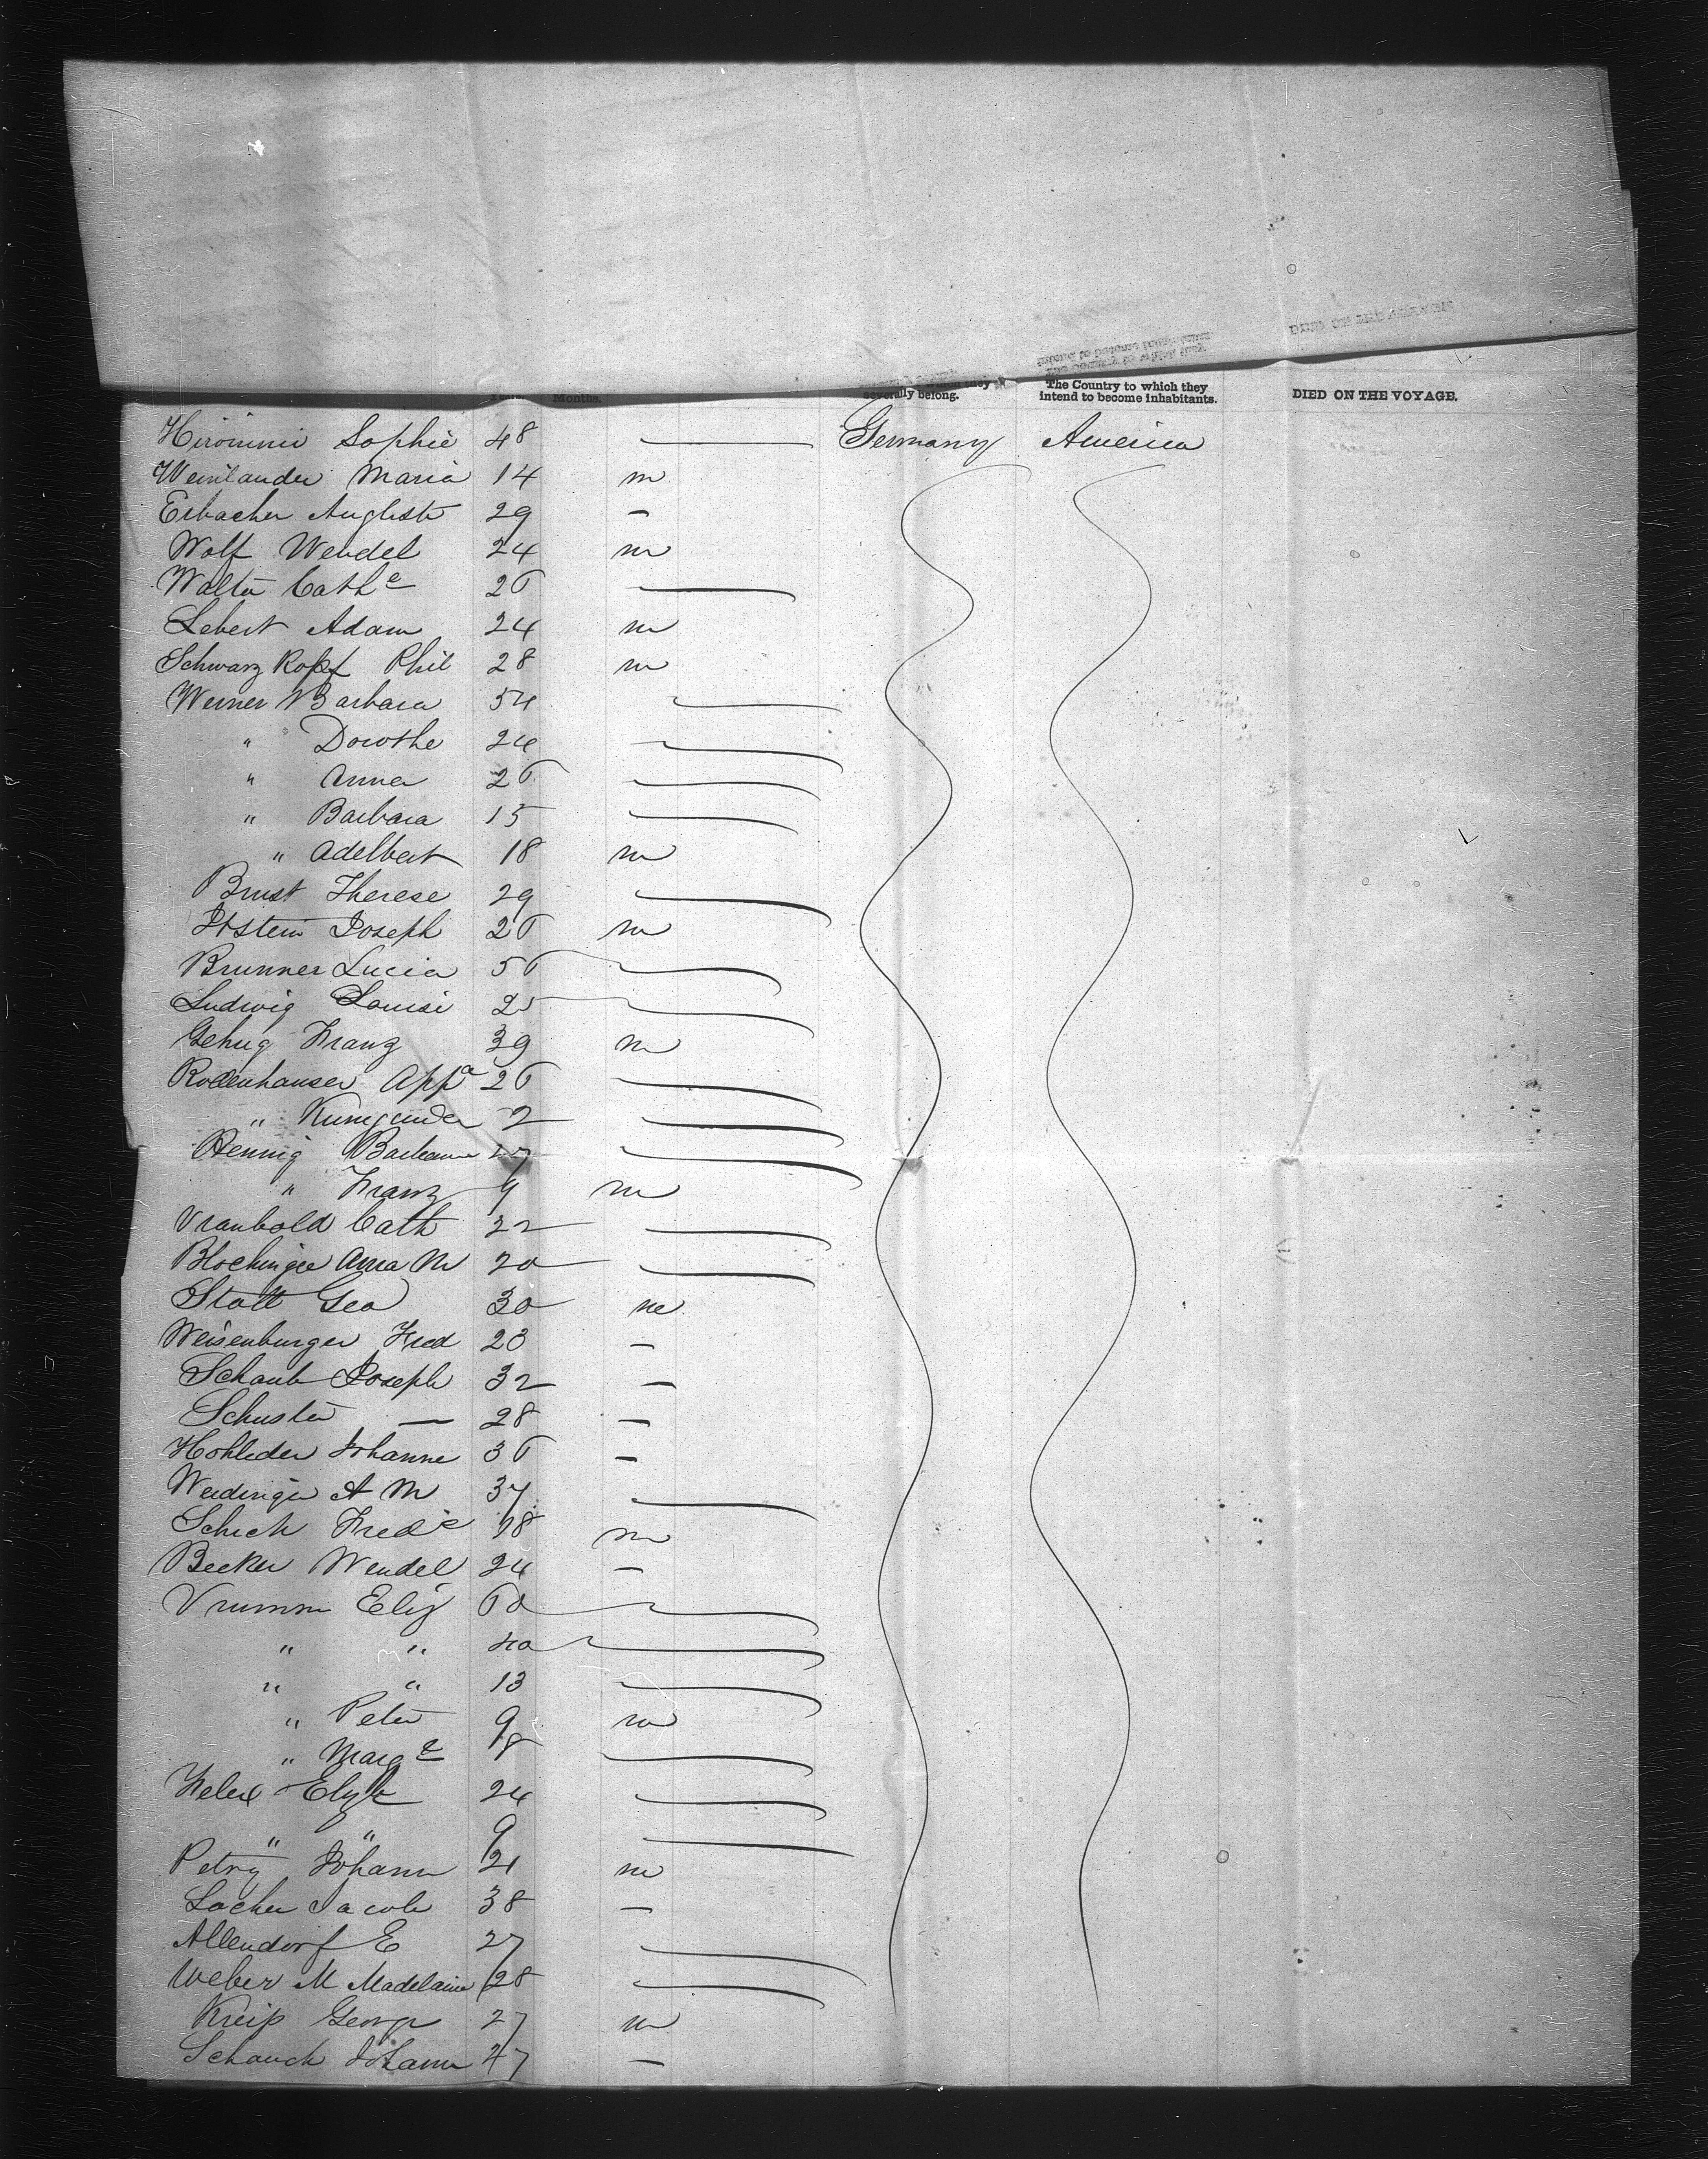 Years. Months. severally belong. The Country to which they intend to become inhabitants. DIED ON THE VOYAGE.
Sophie 48 — Germany America
Weinlander Maria 14 m
Erbacher 29 –
Wolf Wendel 24 m
Walter Cathe 26 —
Lebert Adam 24 m
Schwarz Kopf Phil 28 m
Werner Barbara 54 —
" Dorothe 24 —
" Anna 26 —
" Barbara 15 —
" Adelbert 18 m
Brust Therese 29 —
Joseph 26 m
Brunner Lucia 56 —
Ludwig Louise 25 —
Gehrig Franz 39 m
Rodenhauser Appa 26 —
" Kunigunda 2 —
Hennig Barbara 27 —
" Franz 9 m
Cath 22 —
Blochinger Anna M 20 —
Geo 30 m
Weisenburger Fred 23 –
Schaub Joseph 32 –
Schuster — 28 –
Hohleder Johanne 36 –
A M 37 —
Schick Fredc 18 m
Becker Wendel 24 –
Eliz 60 —
" " 40 —
" " 13 —
" Peter 9 m
" Marge 8 —
24 —
" " 9 —
Petry Johann 21 m
Locher Jacob 38 –
Allendorf E 27 —
Weber M Madelaine 28 —
George 27 m
Schauck Johann 47 –